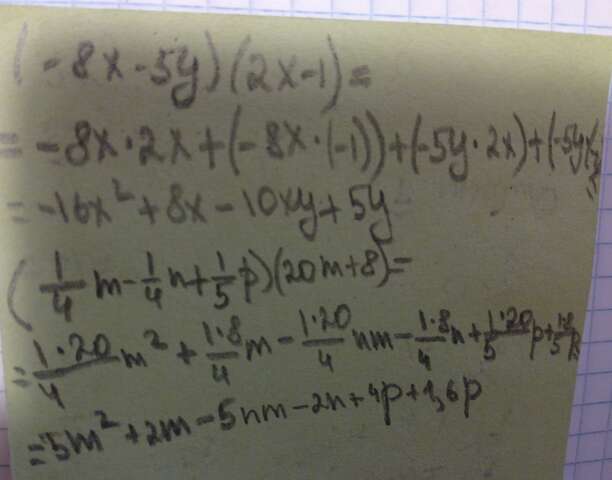 (-8x-5y)(2x-1)=
=-8x·2x+(-8x·(-1))+(-5y·2x)+(-5y
=-16x²+8x-10xy+5y
(1/4 m-1/4 n+1/5 p)(20m+8)=
=1·20/4 m²+1·8/4 m-1·20/4 nm-1·8/4 n+1·20/5 p+1·8/5 p
=5m²+2m-5nm-2n+4p+1,6p